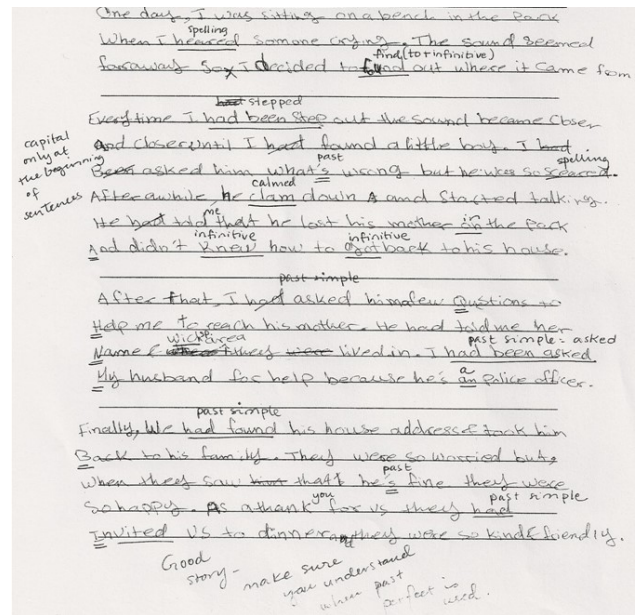 One day, I was sitting on a bench in the Park
spelling
When I heared somone crying. The sound seemed
find (to + infinitive)
faraway so I decided to out where it came from
had stepped
Everytime I had been step out the sound became closer
capital only at the beginning of sentences
and closer until I had found a little boy. I had
past
spelling
Been asked him what's wrong but he was so sceared.
calmed
After awhile he clam down & and started talking.
me
in
He had told that he lost his mother on the Park
infinitive
infinitive
And didn't knew how to got back to his house.
past simple
After that, I had asked him a few Qustions to
Help me to reach his mother. He had told me her
wich sp. area
past simple = asked
Name & they were lived in. I had been asked
a
My husband for help because he's an police officer.
past simple
Finally, We had found his house address & took him
Back to his family. They were so worried but,
past
When they saw that he's fine they were
you
past simple
So happy. As a thank for us they had
Invited us to dinner and they were so kind & friendly.
Good story -
make sure you understand when past perfect is used.